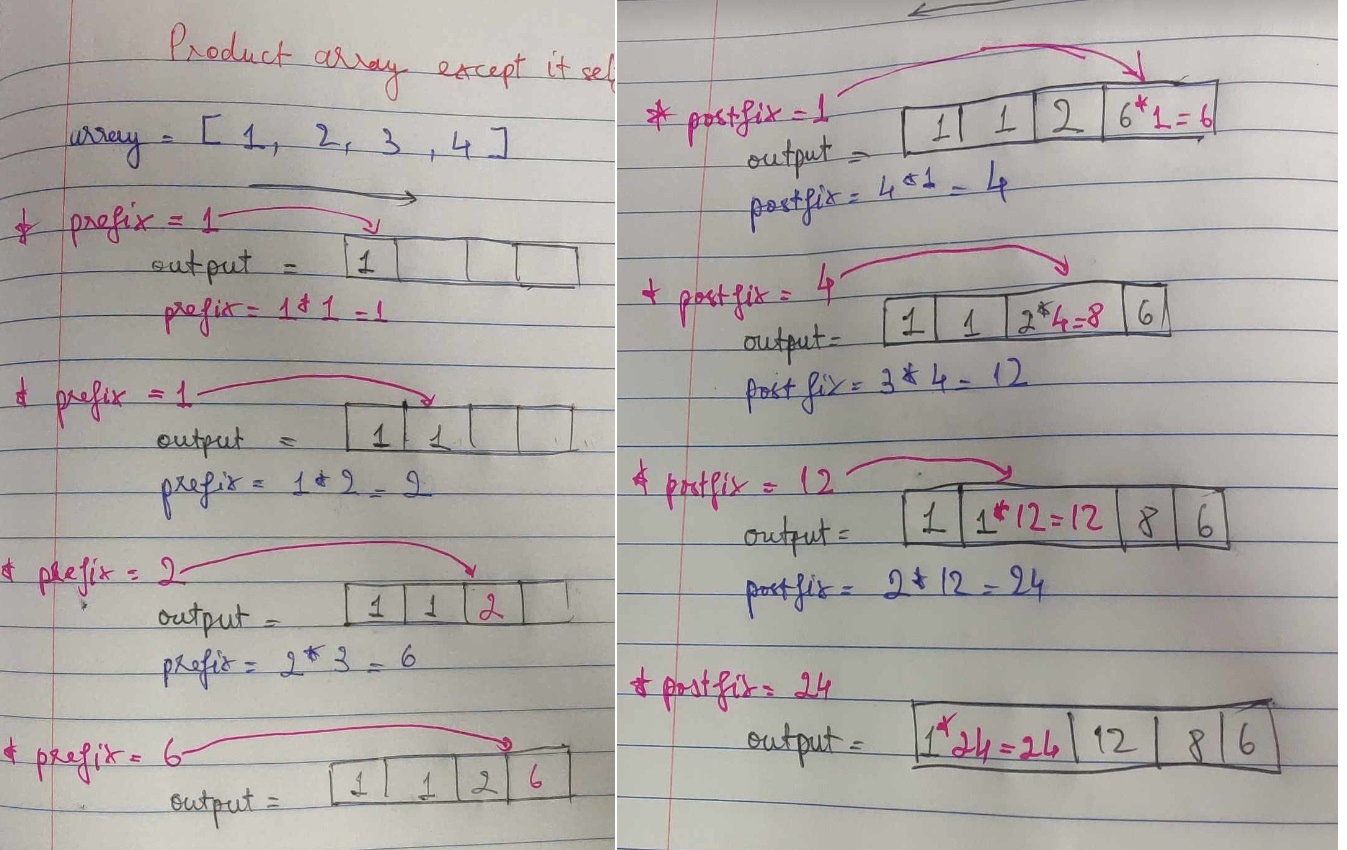 Product array except it sel
array = [ 1, 2, 3, 4 ]
* prefix = 1
output = 1
prefix = 1 * 1 = 1
* prefix = 1
output = 1 1
prefix = 1 * 2 = 2
* prefix = 2
output = 1 1 2
prefix = 2 * 3 = 6
* prefix = 6
output = 1 1 2 6
* postfix = 1
output = 1 1 2 6*1=6
postfix = 4*1 = 4
* postfix = 4
output = 1 1 2*4=8 6
postfix = 3 * 4 = 12
* postfix = 12
output = 1 1*12=12 8 6
postfix = 2 * 12 = 24
* postfix = 24
output = 1*24=24 12 8 6